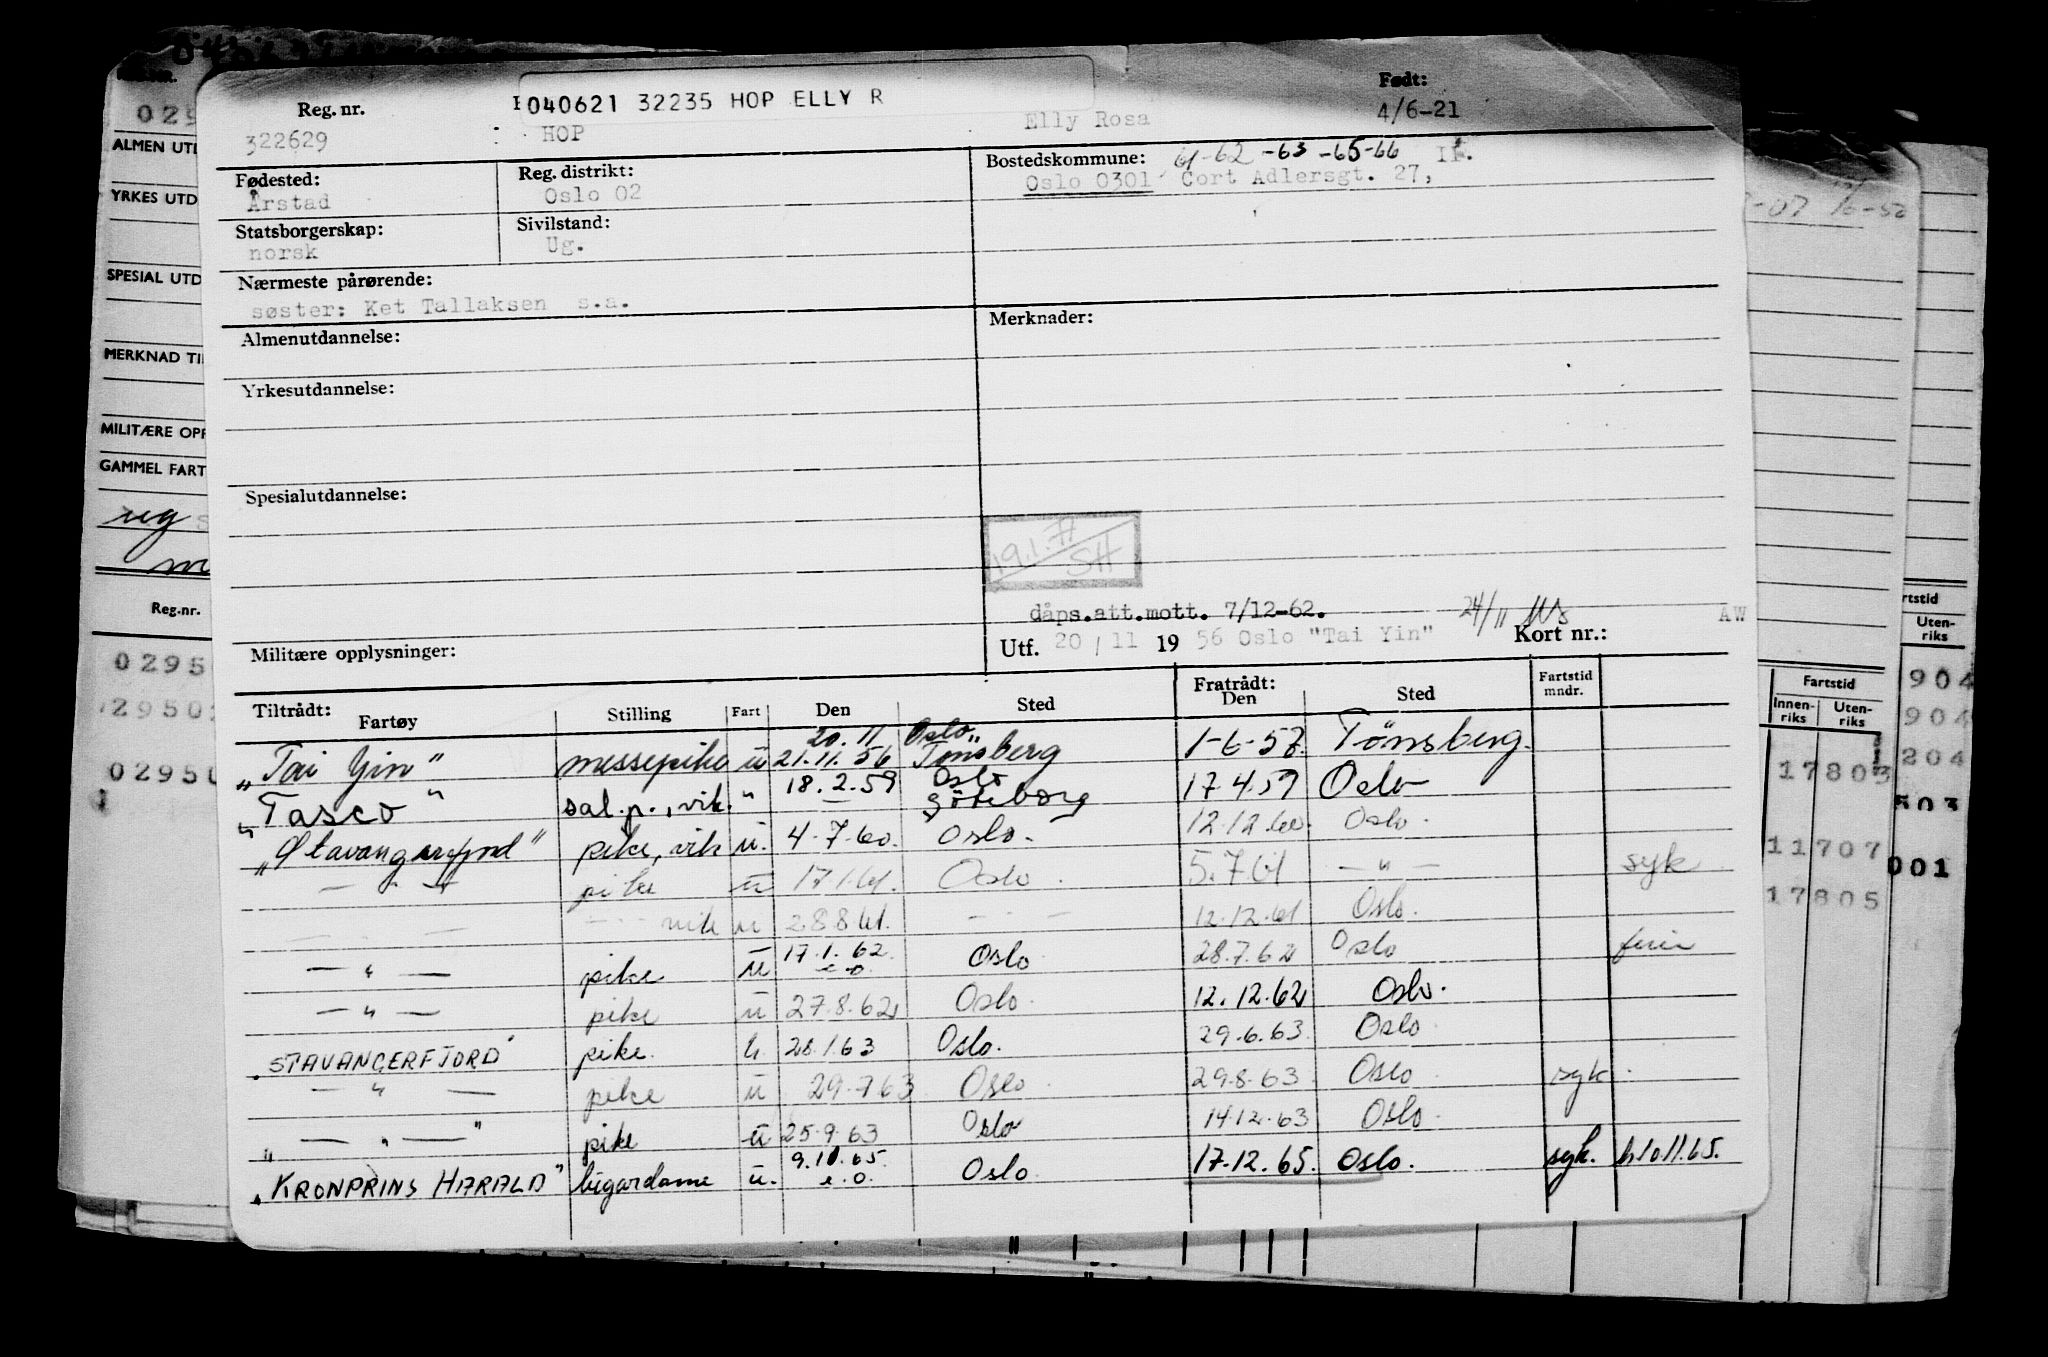 Reg. nr.
040621 32235 HOP ELLY R
Født:
322629 HOP Elly Rosa 4/6-21
Fødested: Reg. distrikt: Bostedskommune: 61-62-63-65-66
Årstad Oslo 02 Oslo 0301 Cort Adlersgt. 27,
Statsborgerskap: Sivilstand:
norsk Ug.
Nærmeste pårørende:
søster: Ket Tallaksen s.a.
Almenutdannelse: Merknader:
Yrkesutdannelse:
Spesialutdannelse:
19.1.77 SH
dåps.att.mott. 7/12-62. 24/11
Militære opplysninger: Utf. 20/11 1956 Oslo "Tai Yin" Kort nr.: AW
Tiltrådt: Fartøy Stilling Fart Den Sted Fratrådt: Den Sted Fartstid mndr.
20.11 Oslo
"Tai Yin" messepike u 21.11.56 Tønsberg 1-6-58. Tønsberg.
18.2.59 Oslo
"Tasco" sal.p., vik. " — Göteborg 17.4.59 Oslo
"Stavangerfjord" pike, vik u. 4.7.60. Oslo. 12.12.60. Oslo.
— " — pike u 17.1.61. Oslo. 5.7.61 — " — syk
— - — — - — vik u 28.8.61. — - — 12.12.61 Oslo.
— " — pike u 17.1.62 e.o. Oslo 28.7.62 Oslo ferie
— " — pike u 27.8.62 Oslo. 12.12.62 Oslo.
"STAVANGERFJORD" pike. u. 28.1.63 Oslo. 29.6.63. Oslo
— " — pike u 29.7.63 Oslo. 29.8.63 Oslo syk.
" — " — " pike u 25.9.63 Oslo 14.12.63 Oslo.
"KRONPRINS HARALD" lugardame u. 9.11.65. e.o. Oslo 17.12.65. Oslo. syk. 10.11.65.
ALMEN UTD
YRKES UTD
SPESIAL UTD
MERKNAD TI
MILITÆRE OPP
GAMMEL FART
ug
Reg.nr.
0295
29502
0295
16-52
Fartstid
Innen-riks Uten-riks
17803
11707
17805
rtstid
Uten-riks
904
904
204
503
001